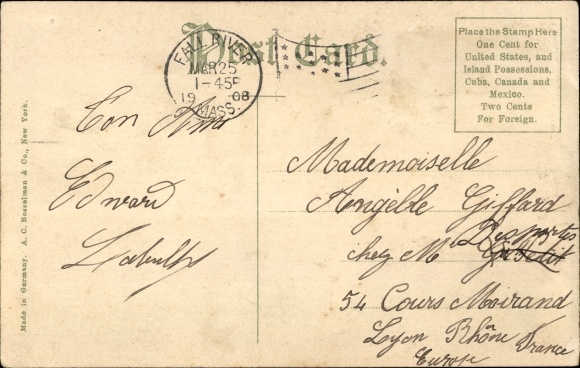 Post Card.
FALL RIVER
MAR 25
1-45P
19 08
MASS.
Place the Stamp Here
One Cent for
United States, and
Island Possessions,
Cuba, Canada and
Mexico.
Two Cents
For Foreign.
Made in Germany. A. C. Bosselman & Co., New York.
Ton Ami
Edward
Mademoiselle
Angèlle Giffard
chez M
54 Cours Morand
Lyon Rhône France
Europe